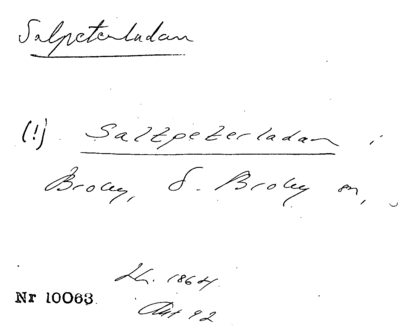 Salpeterladan
(!) Saltpeterladan i
Broby, Ö. Broby sn,
Lh. 1864
Nr 10063
Akt 92